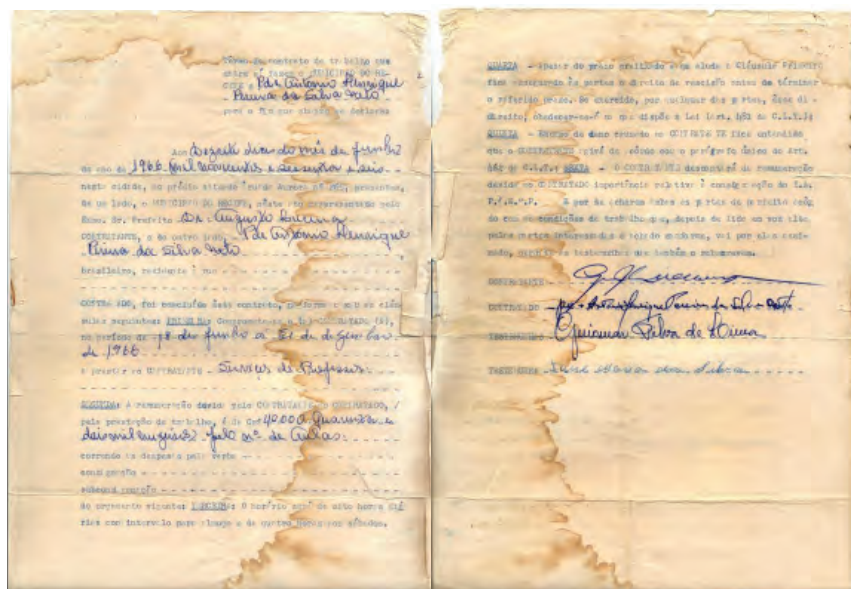 Termo de contrato de trabalho que
entre si fazem o MUNICIPIO DO RE-
CIFE e Pde Antonio Henrique
Pereira da Silva Neto
para o fim que abaixo se declara
Aos Dezoito dias do mês de junho
do ano de 1966 (mil novecentos e sessenta e seis
nesta cidade, no prédio situado à rua da Aurora nº presentes,
de um lado, o MUNICIPIO DO RECIFE, neste ato representado pelo
Exmo. Sr. Prefeito Dr. Augusto Lucena
CONTRATANTE, e do outro lado, Pde Antonio Henrique
Pereira da Silva Neto
brasileiro, residente à rua
CONTRATADO, foi concluido êste contrato, conforme as cláu-
sulas seguintes: PRIMEIRA: Compromete-se o (a) CONTRATADO (a),
no período de 18 de junho a 31 de dezembro
de 1966
a prestar ao CONTRATANTE - Serviços de Professor.
SEGUNDA: A remuneração devida pelo CONTRATANTE ao CONTRATADO, /
pela prestação de trabalho, é de Cr$
pelo nº de Aulas.
correndo as despesas pela verba
consignação
subconsignação
do orçamento vigente: TERCEIRA: O horário será de oito horas diá
rias com intervalo para almoço e de quatro horas aos sábados.
QUARTA - Apesar do prazo estipulado a que alude a Cláusula Primeira
fica assegurado às partes o direito de rescisão antes de terminar
o referido prazo. Se exercido, por qualquer das partes, êsse di-
direito, obedecer-se-á ao que dispõe a Lei (art. 481 da C.L.T.);
QUINTA - Em caso de dano causado ao CONTRATANTE fica entendido
que o CONTRATADO de acôrdo com o parágrafo único do Art.
462 da C.L.T.; SEXTA - O CONTRATANTE descontará da remuneração
devida ao CONTRATADO importância relativa à consignação do I.A.
P.F.E.S.P. E por se acharem ambas as partes de perfeito acôr
do com as condições de trabalho que, depois de lido em voz alta
pelas partes interessadas e achado conforme, vai por elas assi-
nado, com as testemunhas que também o subscrevem.
CONTRATANTE
CONTRATADO Pe. Antonio Henrique Pereira da Silva Neto
TESTEMUNHA Guiomar Silva de Lima
TESTEMUNHA da Silva